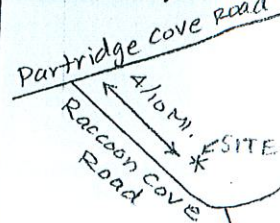 Partridge Cove Road
4/10 MI.
SITE
Raccoon Cove
Road